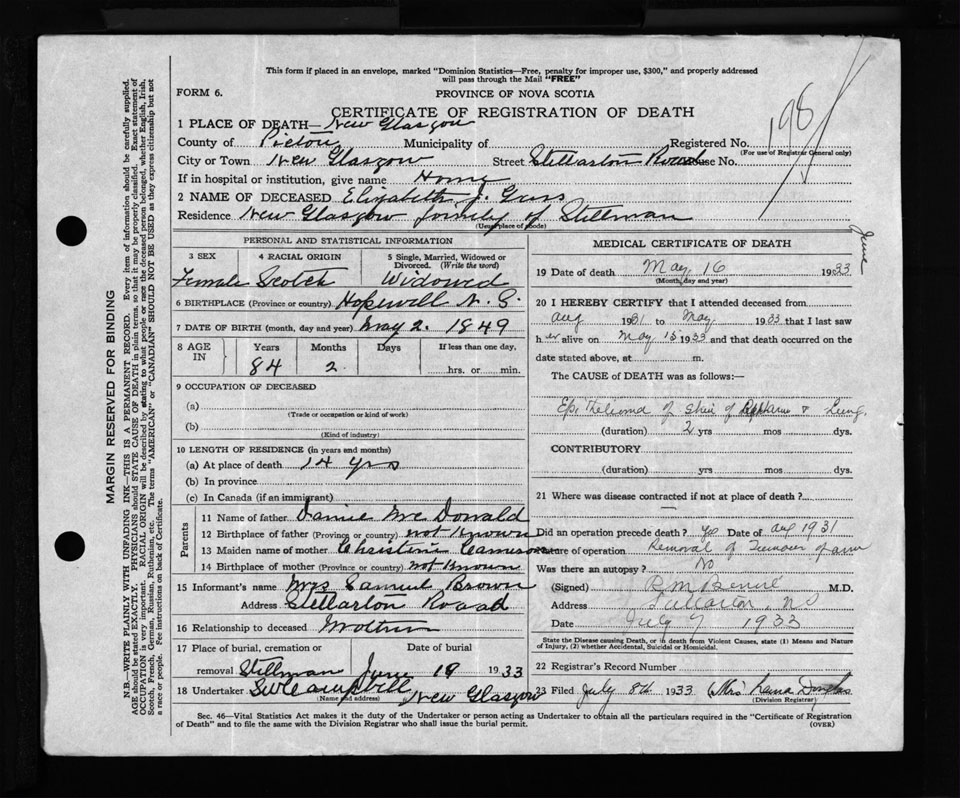 This form if placed in an envelope, marked "Dominion Statistics—Free, penalty for improper use, $300," and properly addressed
will pass through the Mail "FREE"
FORM 6.
PROVINCE OF NOVA SCOTIA
CERTIFICATE OF REGISTRATION OF DEATH
198
1 PLACE OF DEATH— New Glasgow
County of Pictou Municipality of Registered No.
(For use of Registrar General only)
City or Town New Glasgow Street Stellarton Road House No.
If in hospital or institution, give name Home
2 NAME OF DECEASED Elizabeth J.
Residence New Glasgow of Stillman
(Usual place of abode)
PERSONAL AND STATISTICAL INFORMATION
3 SEX 4 RACIAL ORIGIN 5 Single, Married, Widowed or
Divorced. (Write the word)
Female Scotch Widowed
6 BIRTHPLACE (Province or country) Hopewell N. S.
7 DATE OF BIRTH (month, day and year) May 2. 1849
8 AGE IN Years Months Days If less than one day,
84 2 hrs. or min.
9 OCCUPATION OF DECEASED
(a)
(Trade or occupation or kind of work)
(b)
(Kind of industry)
10 LENGTH OF RESIDENCE (in years and months)
(a) At place of death 14 yrs
(b) In province
(c) In Canada (if an immigrant)
Parents
11 Name of father Mc Donald
12 Birthplace of father (Province or country) not Known
13 Maiden name of mother Cameron
14 Birthplace of mother (Province or country) not Known
15 Informant's name Mrs Samuel Brown
Address Stellarton Road
16 Relationship to deceased
17 Place of burial, cremation or Date of burial
removal Stillman June 19 1933
18 Undertaker Campbell New Glasgow
(Name and address)
MEDICAL CERTIFICATE OF DEATH
June
19 Date of death May 16 1933
(Month, day and year)
20 I HEREBY CERTIFY that I attended deceased from
Aug 1931 to May 1933 that I last saw
h er alive on May 15 1933 and that death occurred on the
date stated above, at m.
The CAUSE of DEATH was as follows:—
Epithelioma of Skin of arm & Lung.
(duration) 2 yrs mos dys.
CONTRIBUTORY
(duration) yrs mos dys.
21 Where was disease contracted if not at place of death?
Did an operation precede death? Yes Date of Aug 1931
Nature of operation Removal of Tumour of arm
Was there an autopsy? No
(Signed) M.D.
Address Stellarton, N S
Date July 7 1933
State the Disease causing Death, or in death from Violent Causes, state (1) Means and Nature
of Injury, (2) whether Accidental, Suicidal or Homicidal.
22 Registrar's Record Number
23 Filed July 8th 1933 (Mrs) Douglas
(Division Registrar)
Sec. 46—Vital Statistics Act makes it the duty of the Undertaker or person acting as Undertaker to obtain all the particulars required in the "Certificate of Registration
of Death" and to file the same with the Division Registrar who shall issue the burial permit.
(OVER)
MARGIN RESERVED FOR BINDING
N.B.—WRITE PLAINLY WITH UNFADING INK—THIS IS A PERMANENT RECORD. Every item of information should be carefully supplied.
AGE should be stated EXACTLY. PHYSICIANS should STATE CAUSE OF DEATH in plain terms, so that it may be properly classified. Exact statement of
OCCUPATION is very important. RACIAL ORIGIN will be described by stating to what people or race the deceased person belonged, whether English, Irish,
Scotch, French, German, Russian, Ruthenian, etc. The terms "AMERICAN" or "CANADIAN" SHOULD NOT BE USED as they express citizenship but not
a race or people. See instructions on back of Certificate.